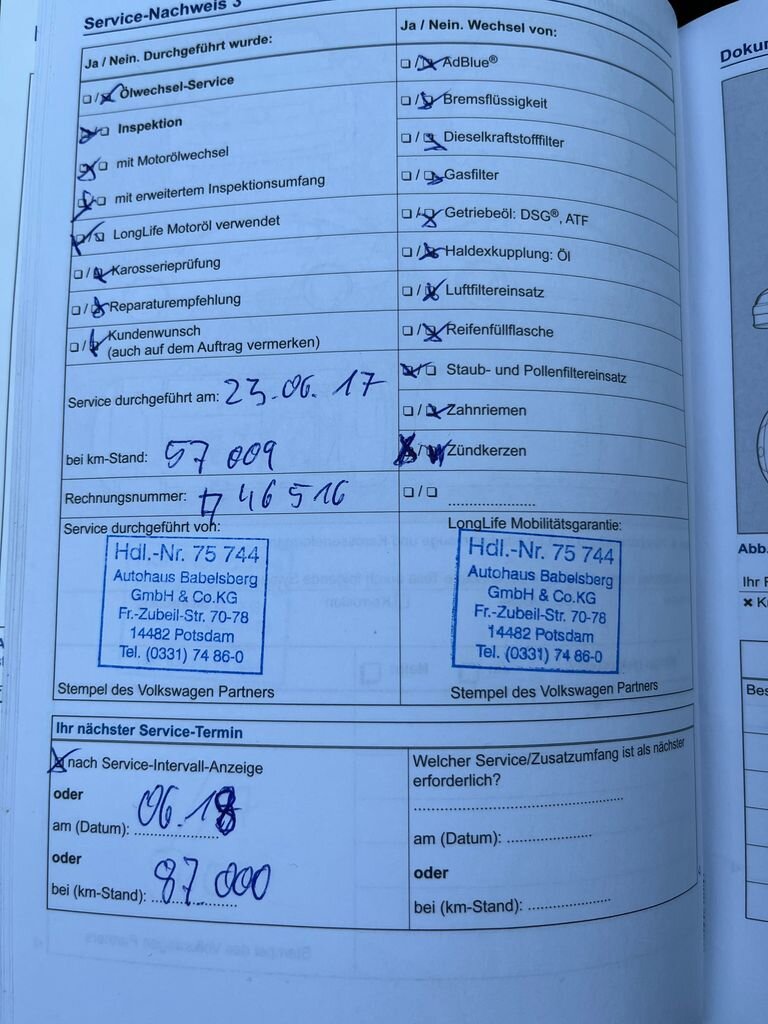 Service-Nachweis 3
Ja / Nein. Durchgeführt wurde:
❏ / ❏ Ölwechsel-Service
❏ / ❏ Inspektion
❏ / ❏ mit Motorölwechsel
❏ / ❏ mit erweitertem Inspektionsumfang
❏ / ❏ LongLife Motoröl verwendet
❏ / ❏ Karosserieprüfung
❏ / ❏ Reparaturempfehlung
❏ / ❏ Kundenwunsch
(auch auf dem Auftrag vermerken)
Service durchgeführt am: 23.06.17
bei km-Stand: 57 009
Rechnungsnummer: 46516
Service durchgeführt von:
Hdl.-Nr. 75 744
Autohaus Babelsberg
GmbH & Co.KG
Fr.-Zubeil-Str. 70-78
14482 Potsdam
Tel. (0331) 74 86-0
Stempel des Volkswagen Partners
Ja / Nein. Wechsel von:
❏ / ❏ AdBlue®
❏ / ❏ Bremsflüssigkeit
❏ / ❏ Dieselkraftstofffilter
❏ / ❏ Gasfilter
❏ / ❏ Getriebeöl: DSG®, ATF
❏ / ❏ Haldexkupplung: Öl
❏ / ❏ Luftfiltereinsatz
❏ / ❏ Reifenfüllflasche
❏ / ❏ Staub- und Pollenfiltereinsatz
❏ / ❏ Zahnriemen
❏ / ❏ Zündkerzen
❏ / ❏ ....................
LongLife Mobilitätsgarantie:
Hdl.-Nr. 75 744
Autohaus Babelsberg
GmbH & Co.KG
Fr.-Zubeil-Str. 70-78
14482 Potsdam
Tel. (0331) 74 86-0
Stempel des Volkswagen Partners
Ihr nächster Service-Termin
❏ nach Service-Intervall-Anzeige
oder
am (Datum): 06.18
oder
bei (km-Stand): 87 000
Welcher Service/Zusatzumfang ist als nächster
erforderlich?
..................................................
am (Datum): ....................
oder
bei (km-Stand): ....................
Abb.